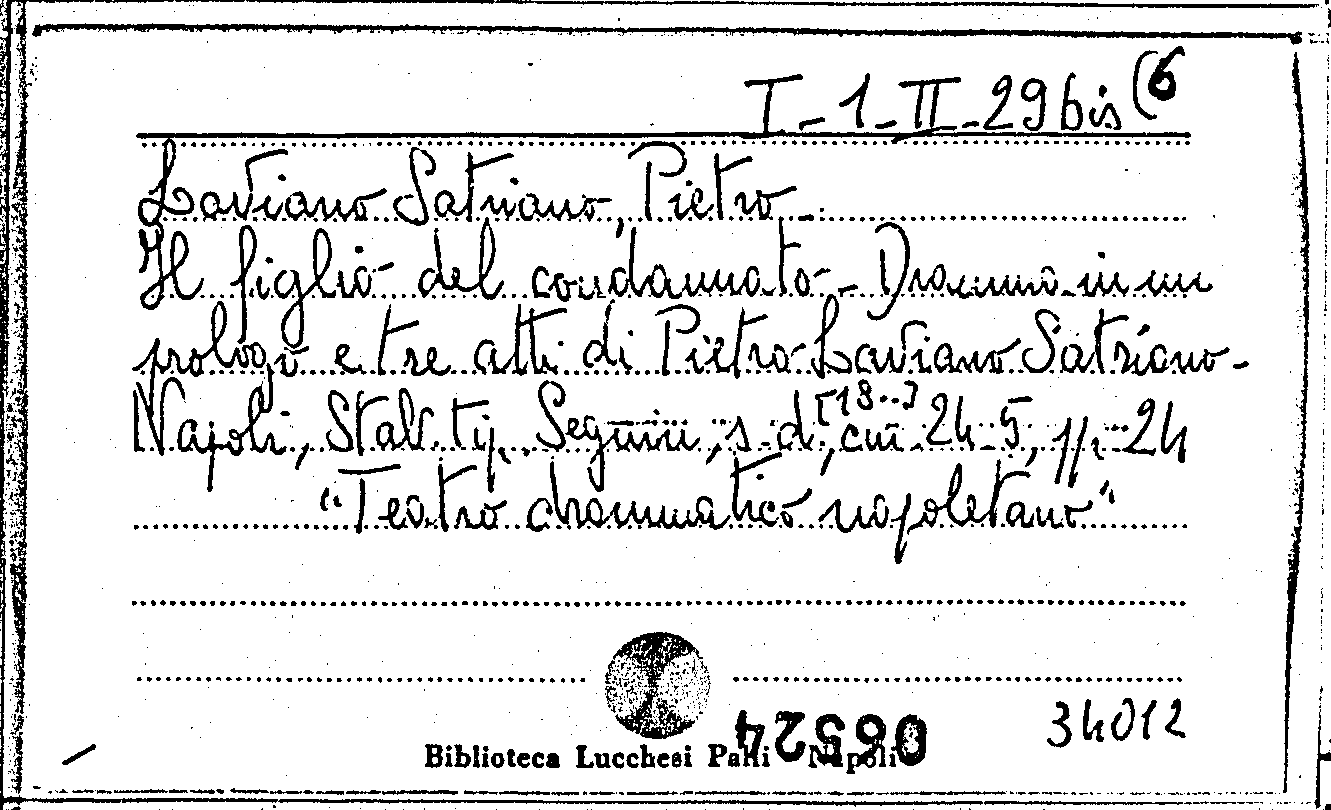 I-1-II-29 bis (6
Laviano Satriano, Pietro -
Il figlio del condannato - Dramma in un
prologo e tre atti di Pietro Laviano Satriano -
Napoli, Stab. tip. Seguin, s. d. [18..], cm 24.5, pp. 24
"Teatro drammatico napoletano"
34012
06524
Biblioteca Lucchesi Palli Napoli